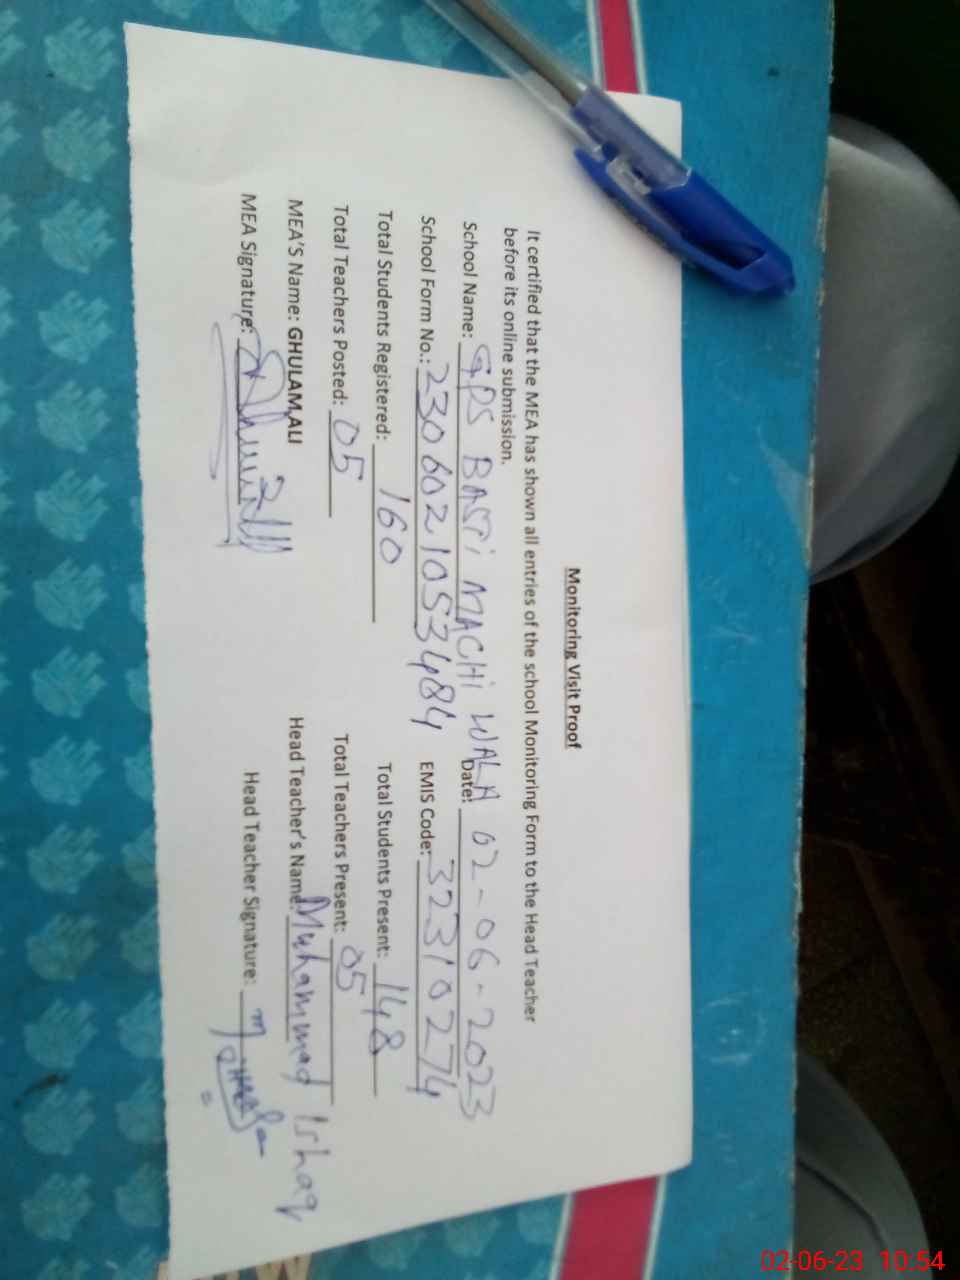 Monitoring Visit Proof
It certified that the MEA has shown all entries of the school Monitoring Form to the Head Teacher
before its online submission.
School Name: GPS BASTi MACHi WALA Date: 02-06-2023
School Form No.: 2306021053484 EMIS Code: 32310274
Total Students Registered: 160 Total Students Present: 148
Total Teachers Posted: 05 Total Teachers Present: 05
MEA'S Name: GHULAM ALI Head Teacher's Name: Muhammad Ishaq
MEA Signature: Head Teacher Signature:
02-06-23 10:54